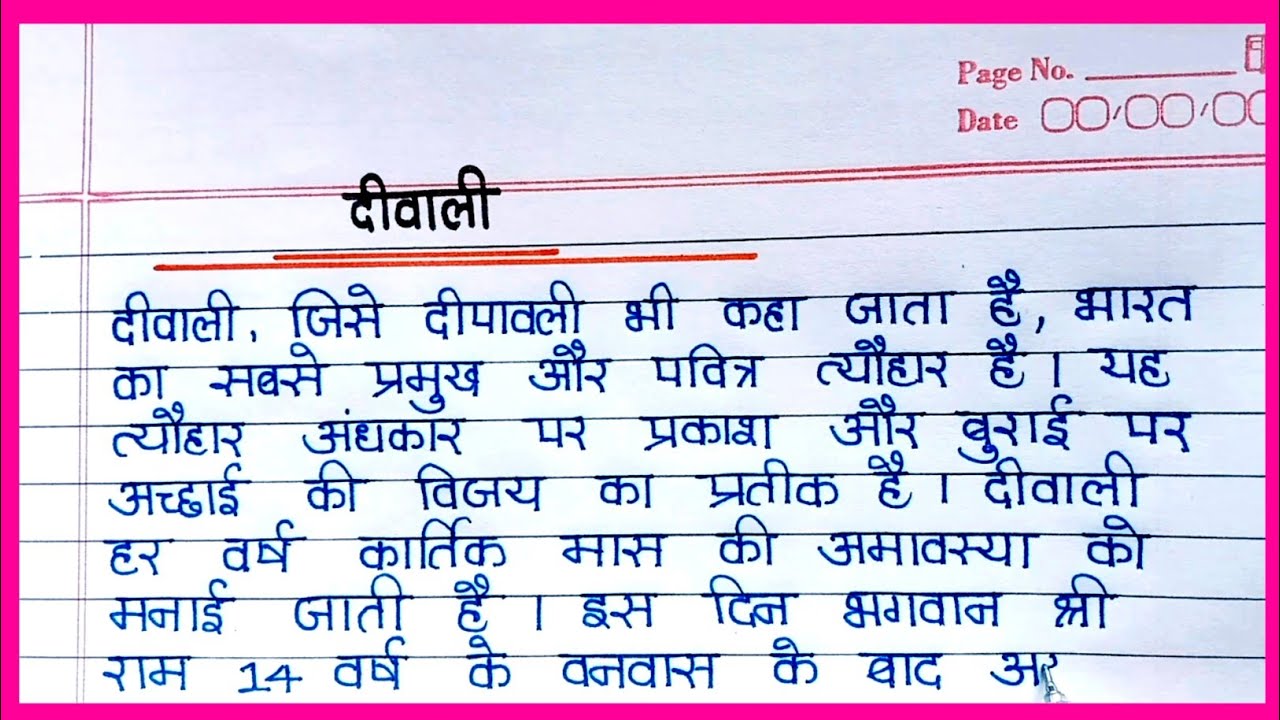 Page No.
Date
दीवाली
दीवाली, जिसे दीपावली भी कहा जाता है, भारत
का सबसे प्रमुख और पवित्र त्यौहार है । यह
त्यौहार अंधकार पर प्रकाश और बुराई पर
अच्छाई की विजय का प्रतीक है । दीवाली
हर वर्ष कार्तिक मास की अमावस्या को
मनाई जाती है । इस दिन भगवान श्री
राम 14 वर्ष के वनवास के बाद